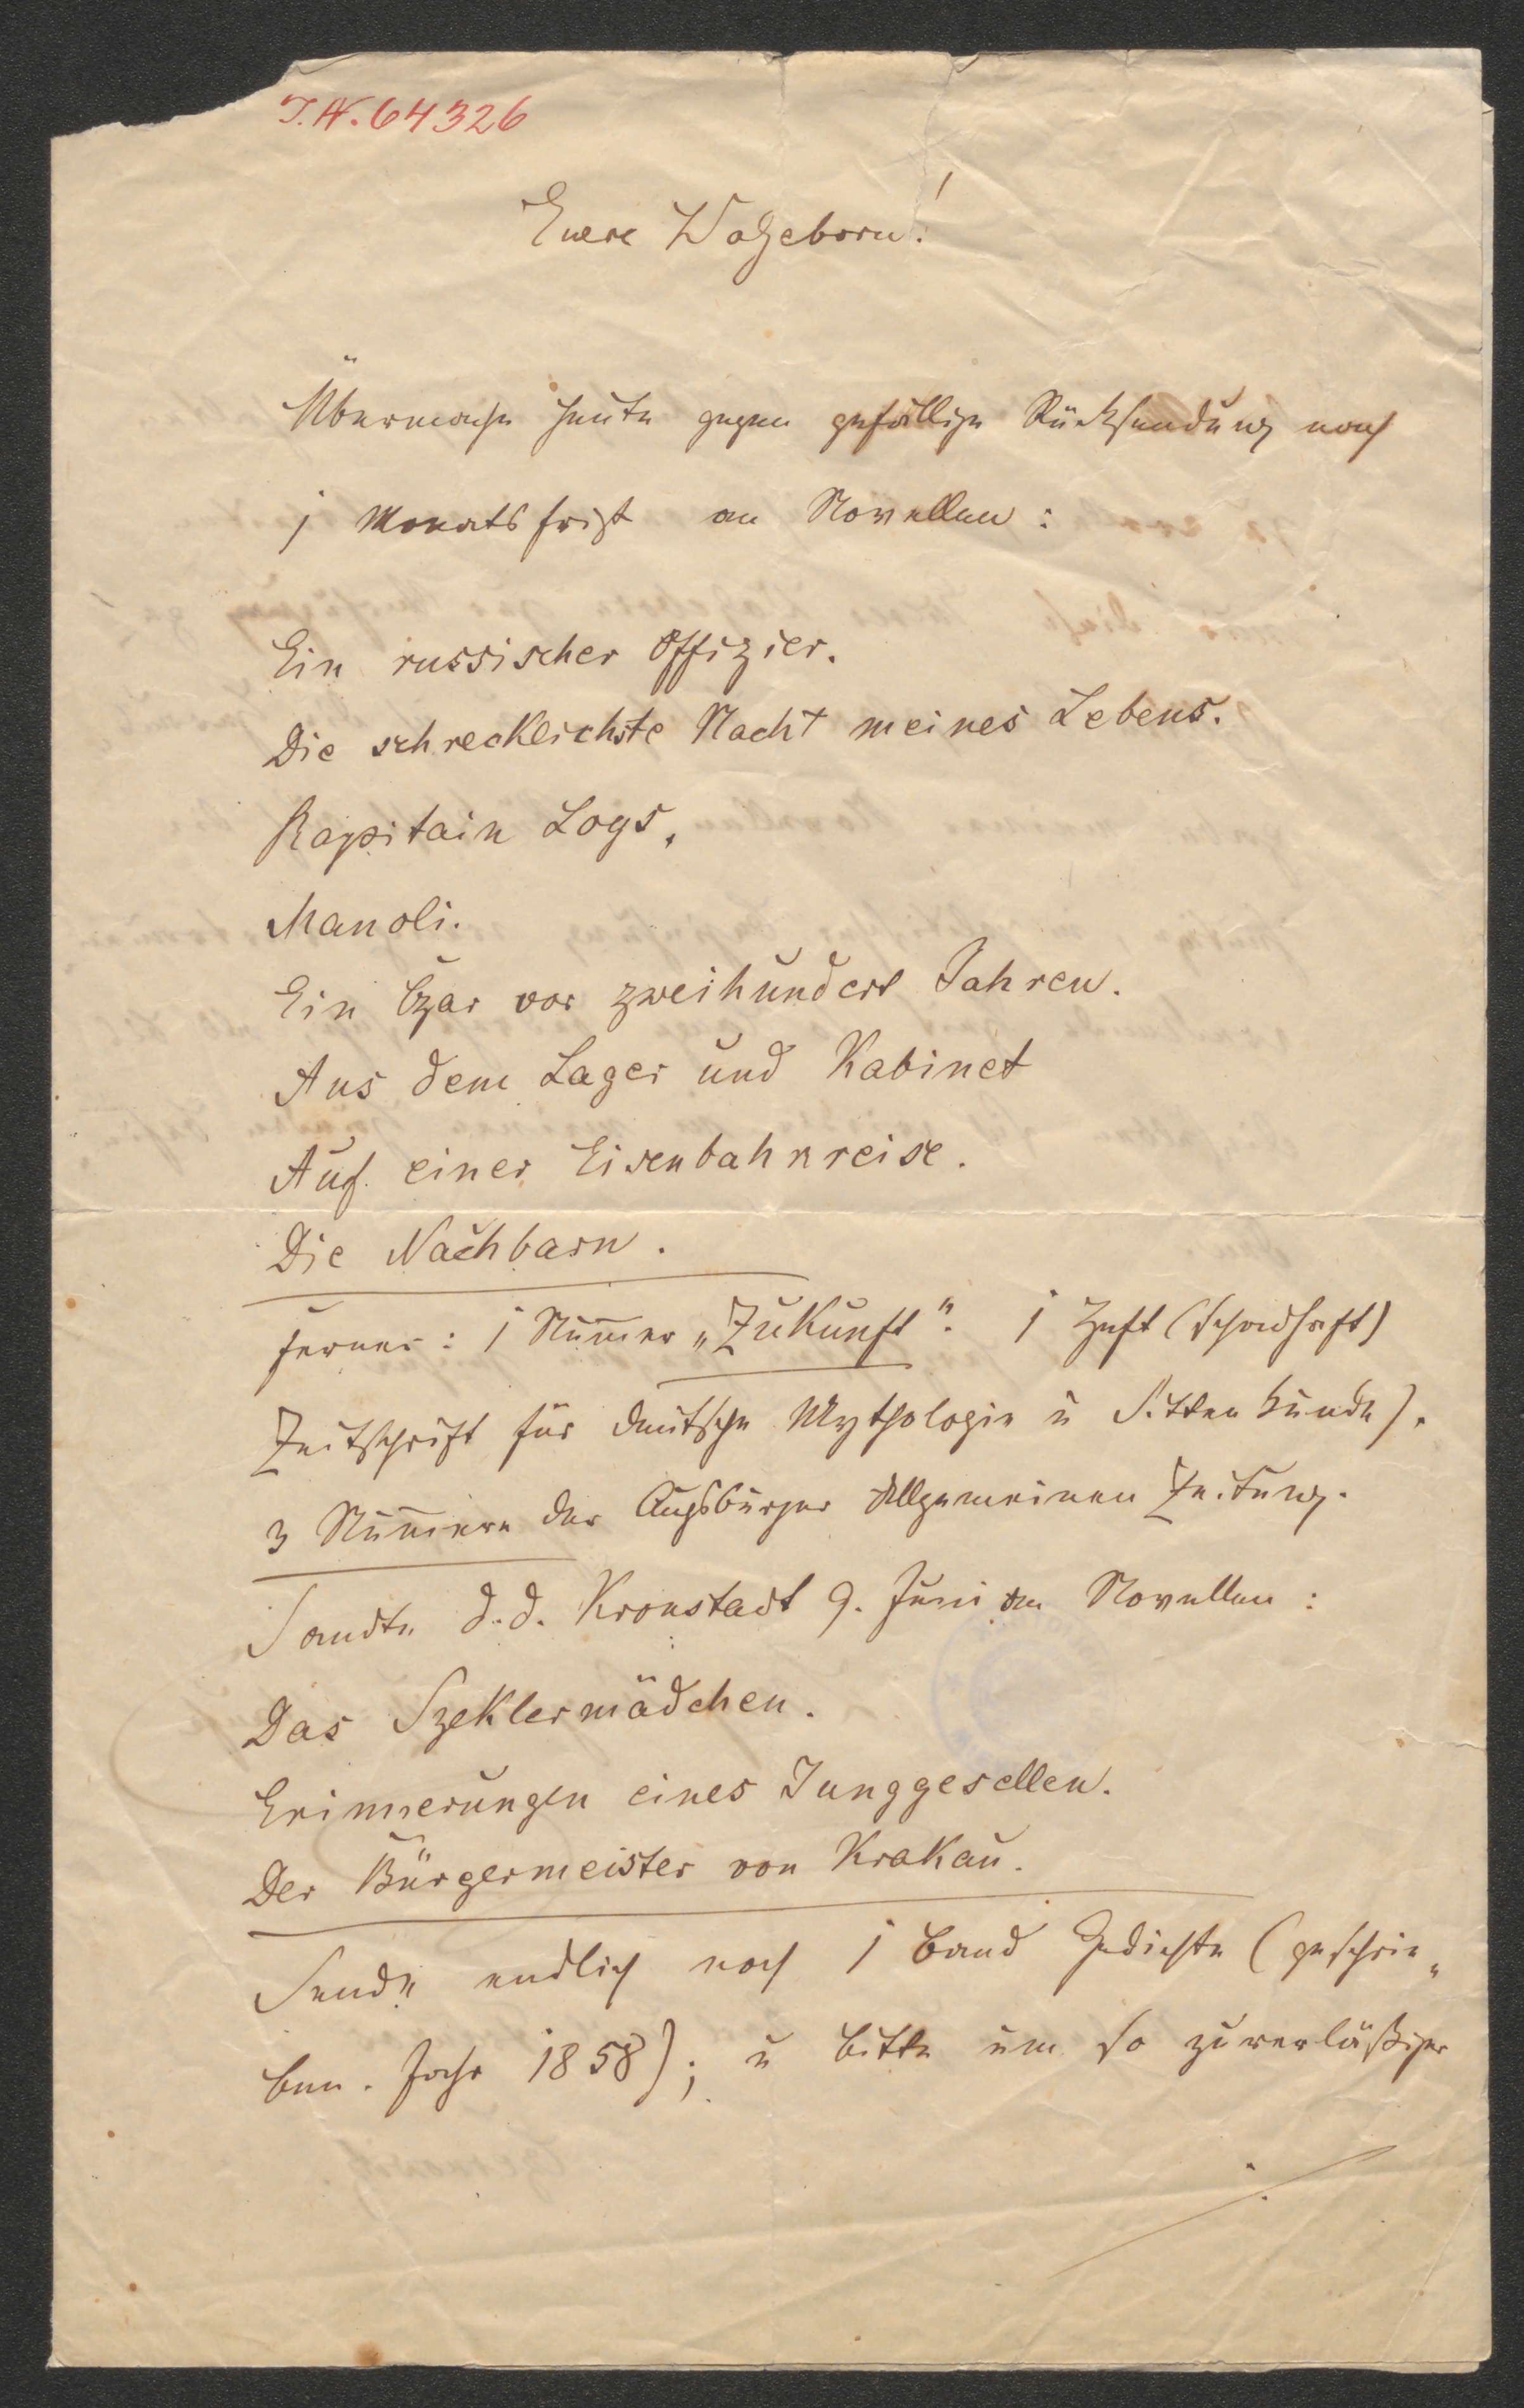 I.N. 64326
Euere Wolgeborn!
Übermache heute gegen gefällige Rücksendung nach
1 Monatsfrist an Novellen:
Ein russischer Offizier.
Die schrecklichste Nacht meines Lebens.
Kapitain Logs.
Manoli.
Ein Czar vor zweihundert Jahren.
Aus dem Lager und Kabinet
Auf einer Eisenbahnreise.
Die Nachbarn.
ferner: 1 Nummer „Zukunft". 1 Heft (schadhaft)
Zeitschrift für deutsche Mythologie u Sittenkunde).
3 Nummern der Augsburger Allgemeinen Zeitung.
Sandte d.d. Kronstadt 9. Juni an Novellen:
Das Szeklermädchen.
Erinnerungen eines Junggesellen.
Der Bürgermeister von Krakau.
Sende endlich noch 1 Band Gedichte (geschrie„
ben. Jahr 1858); u bitte um so zuverläßiger
./.